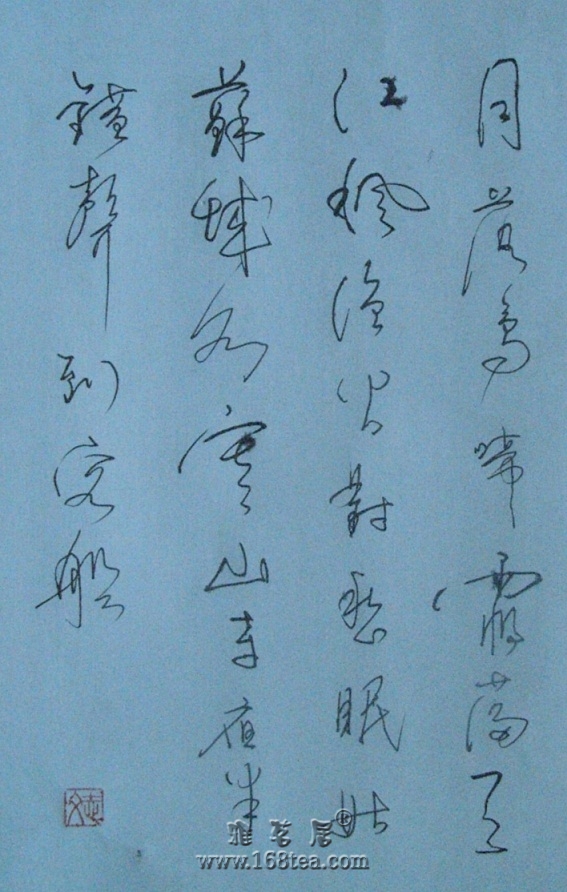 月落烏啼霜滿天
江楓漁火對愁眠姑
蘇城外寒山寺夜半
鐘聲到客船
雅茗居®
www.168tea.com